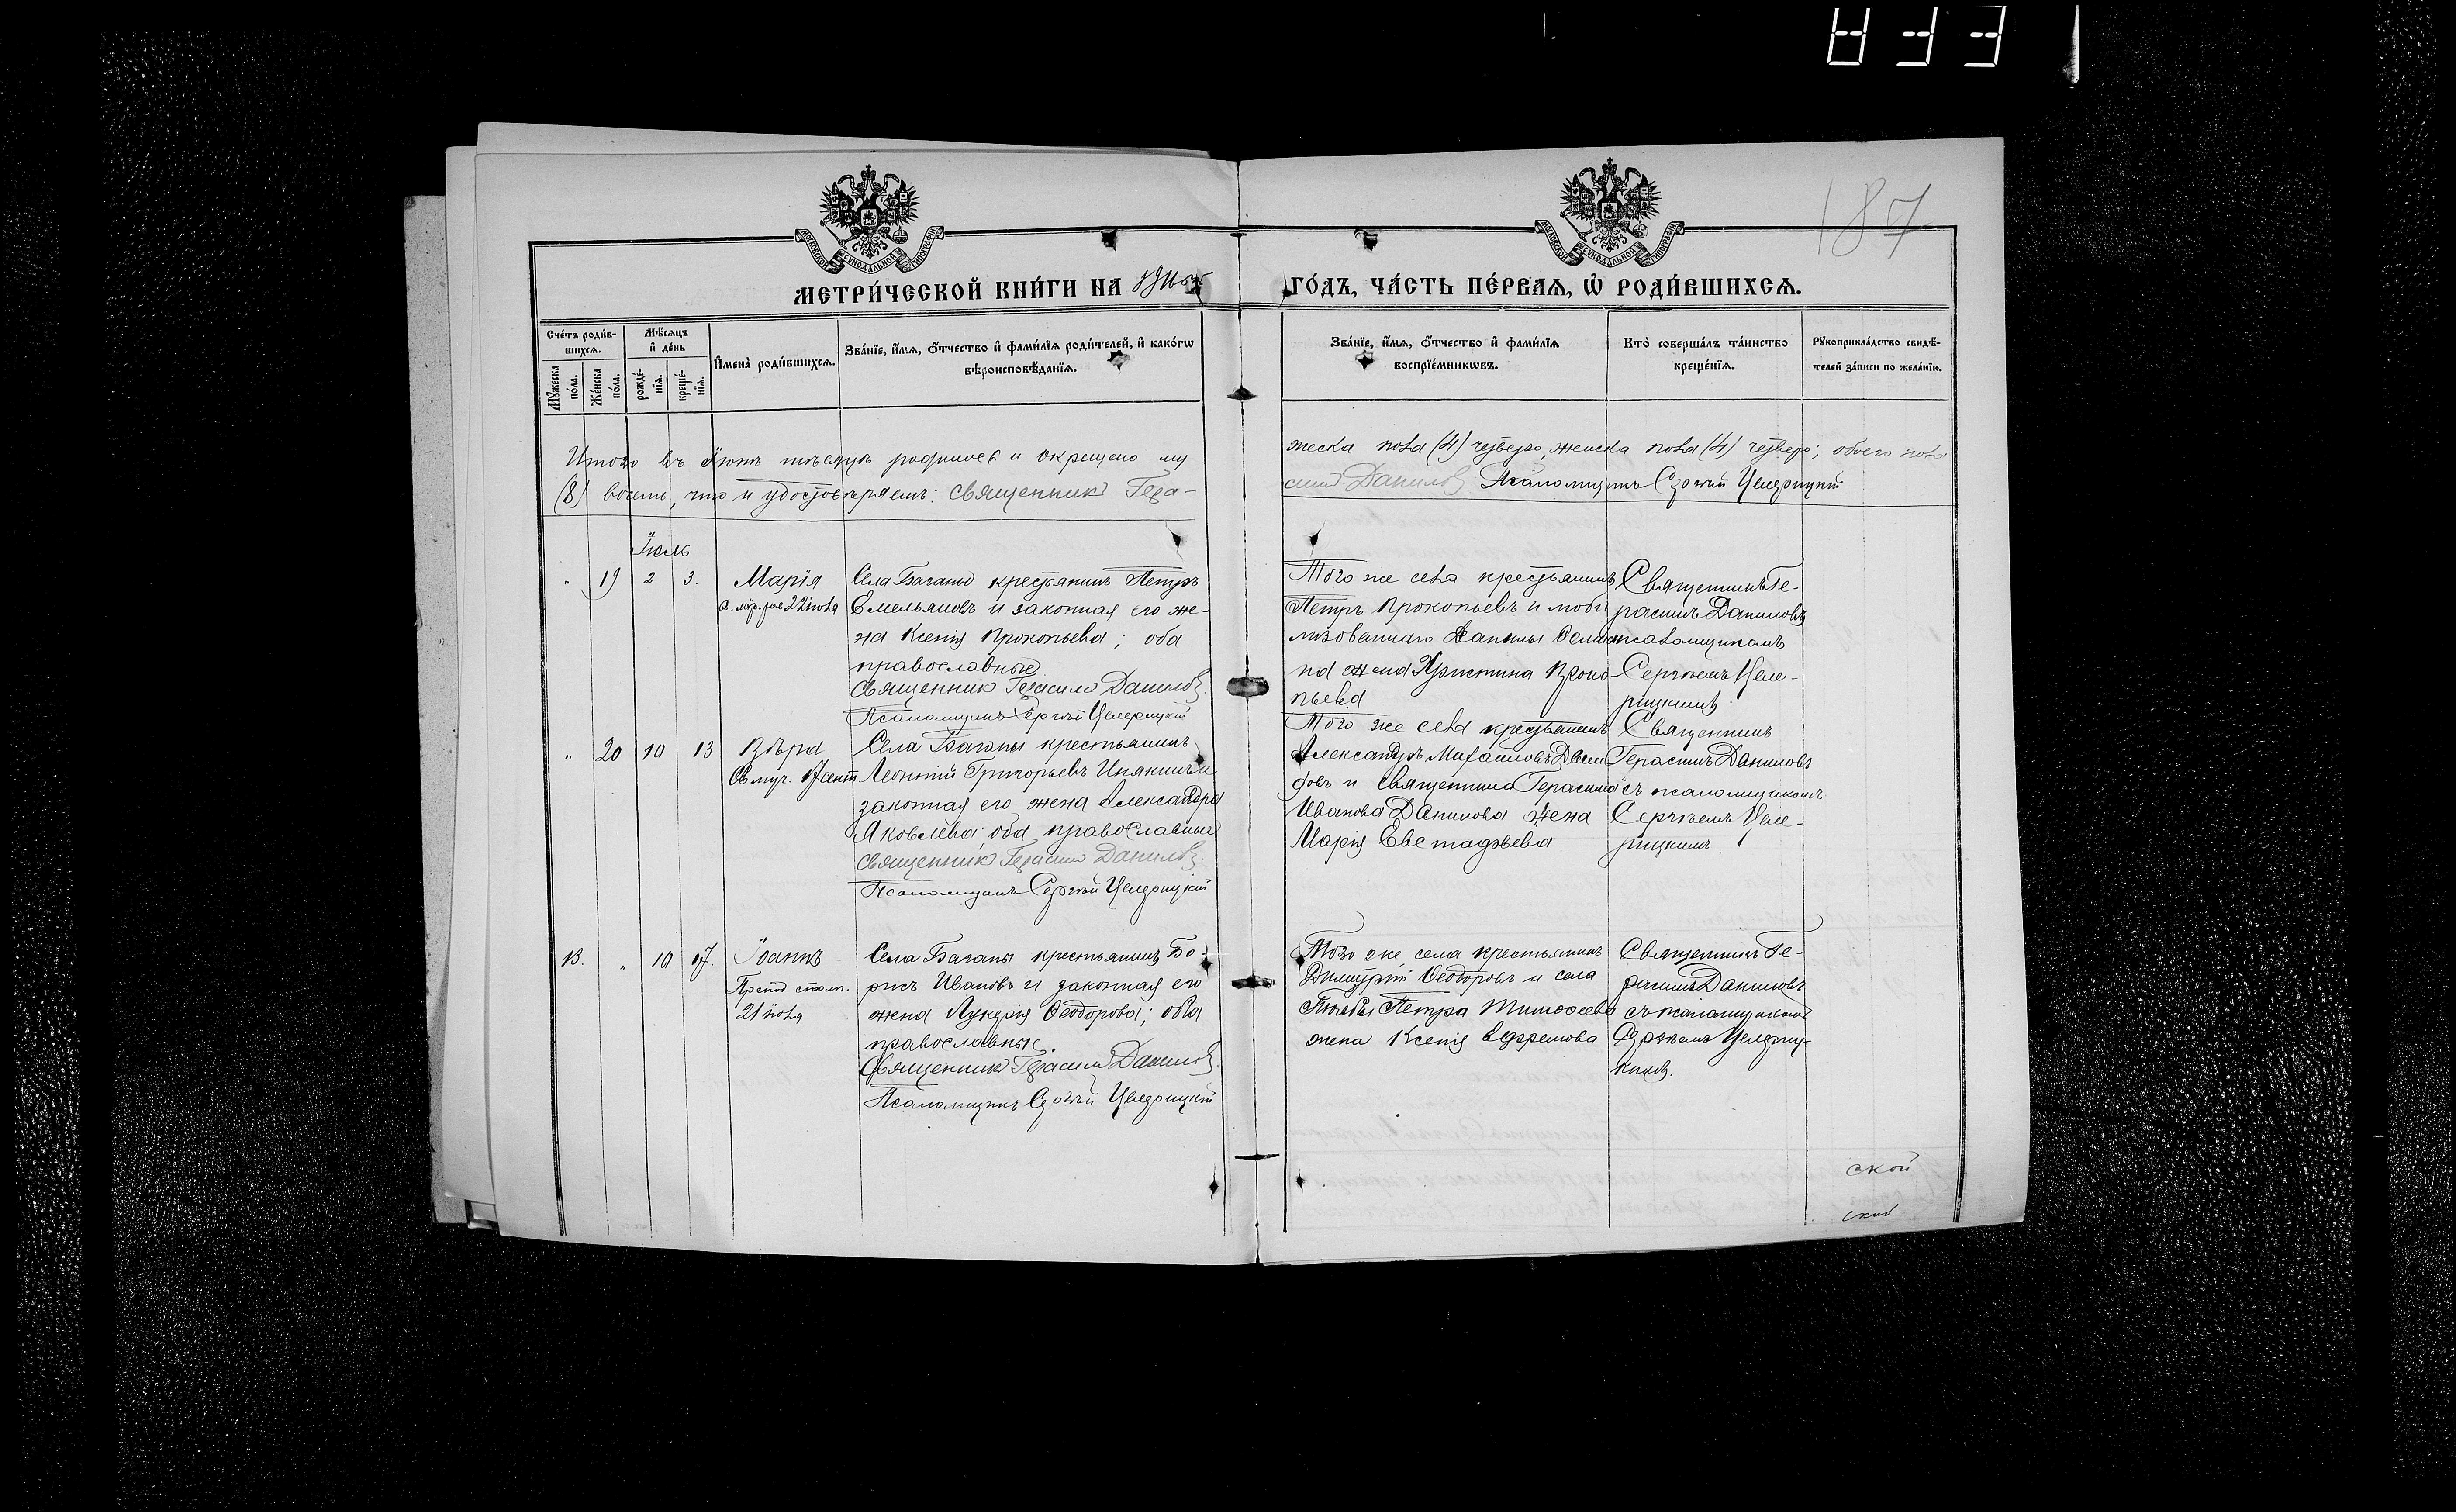 187
МЕТРИ́ЧЕСКОЙ КНИ́ГИ НА
ГО́ДЪ, ЧА́СТЬ ПЕ́РВАѦ, Ѽ РОДИ́ВШИХСѦ.
Сче́тъ роди́в-
шихсѧ.
Мꙋ́жеска по́ла.
Же́нска по́ла.
Мѣ́сѧцъ и҆ де́нь
рожде́-нїѧ.
креще́-нїѧ.
И҆мена̀ роди́вшихсѧ.
Зва́нїе, и҆́мѧ, ѻ҆́тчество и҆ фами́лїѧ роди́телей, и҆ како́гѡ
вѣроисповѣ́данїѧ.
Зва́нїе, и҆́мѧ, ѻ҆́тчество и҆ фами́лїѧ
воспрїе́мникѡвъ.
Кто̀ соверша́лъ та́инство
креще́нїѧ.
Рꙋкоприкла́дство свидѣ́-
телей за́писи по жела́нїю.
Итого въ Іюнѣ мѣсяцѣ родилось и окрещено му
жеска пола (4) четверо, женска пола (4) четверо; обоего пола
(8) восемь, что и удостовѣряемъ: Священникъ Гера-
симъ Даниловъ Псаломщикъ Сергій
Іюль
" 19 2 3.
Марія
р. мѵр. рав. 22 іюля
Села Баганы крестьянинъ Петръ
Емельяновъ и законная его же-
на Ксенія Прокопьева; оба
православные
Священникъ Герасимъ Даниловъ.
Псаломщикъ Сергій
Того же села крестьянинъ
Петръ Прокопьевъ и моби
лизованнаго
на жена Христина Проко-
пьева
Священникъ Ге-
расимъ Даниловъ
псаломщикомъ
Сергіемъ
" 20 10 13
Вѣра
Св. муч. 17 сент
Села Баганы крестьянинъ
Леонтій Григорьевъ
законная его жена Александра
Яковлева; оба православные
Священникъ Герасимъ Даниловъ
Псаломщикъ Сергій
Того же села крестьянинъ
Александръ Михайловъ Давы
довъ и Священника Герасима
Иванова Данилова жена
Марія Евстафьева
Священникъ
Герасимъ Даниловъ
съ псаломщикомъ
Сергіемъ
13. " 10 17.
Іоаннъ
Препод. столп.
21 іюля
Села Баганы крестьянинъ Бо-
рисъ Ивановъ и законная его
жена Лукерія Ѳеодорова; оба
православные.
Священникъ Герасимъ Даниловъ
Псаломщикъ Сергій
Того же села крестьянинъ
Димитрій Ѳеодоровъ и села
Петра Тимофеева
жена Ксенія Ефремова
Священникъ Ге-
расимъ Даниловъ
съ псаломщикомъ
Сергіемъ
ской
ской